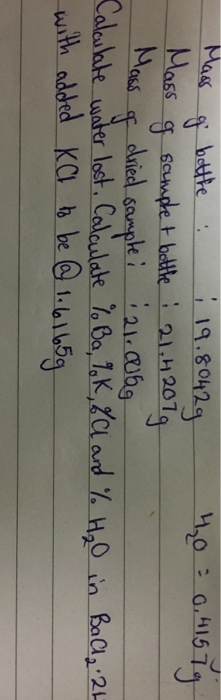 Mass of bottle : : 19.8042g H2O = 0.4157g
Mass of sample + bottle : 21.4207g
Mass of dried sample : : 21.0015g
Calculate water lost. Calculate % Ba, % K, % Cl and % H2O in BaCl2.2H
with added KCl to be @ 1.6165g